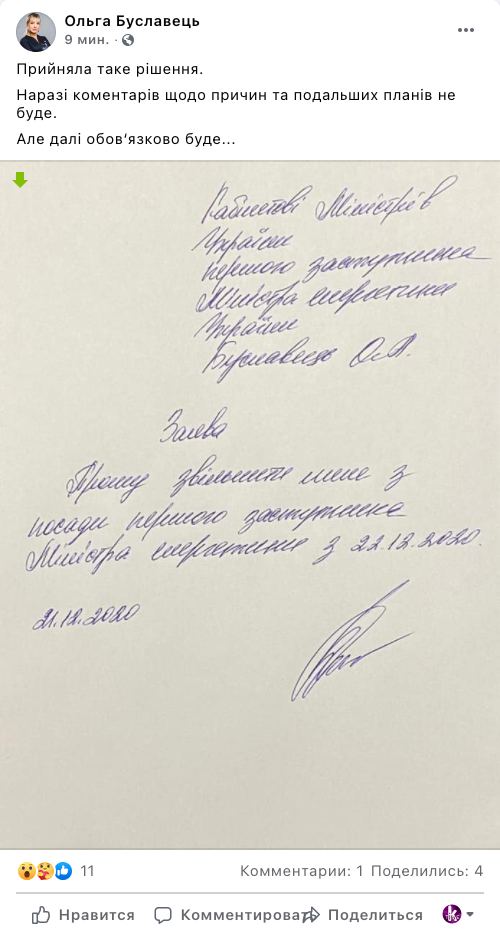 Ольга Буславець
9 мин. ·
Прийняла таке рішення.
Наразі коментарів щодо причин та подальших планів не
буде.
Але далі обов'язково буде...
Кабінетові Міністрів
України
першого заступника
Міністра енергетики
України
Буславець О.А.
Заява
Прошу звільнити мене з
посади першого заступника
Міністра енергетики з 22.12.2020.
21.12.2020
11
Комментарии: 1 Поделились: 4
Нравится
Комментировать
Поделиться